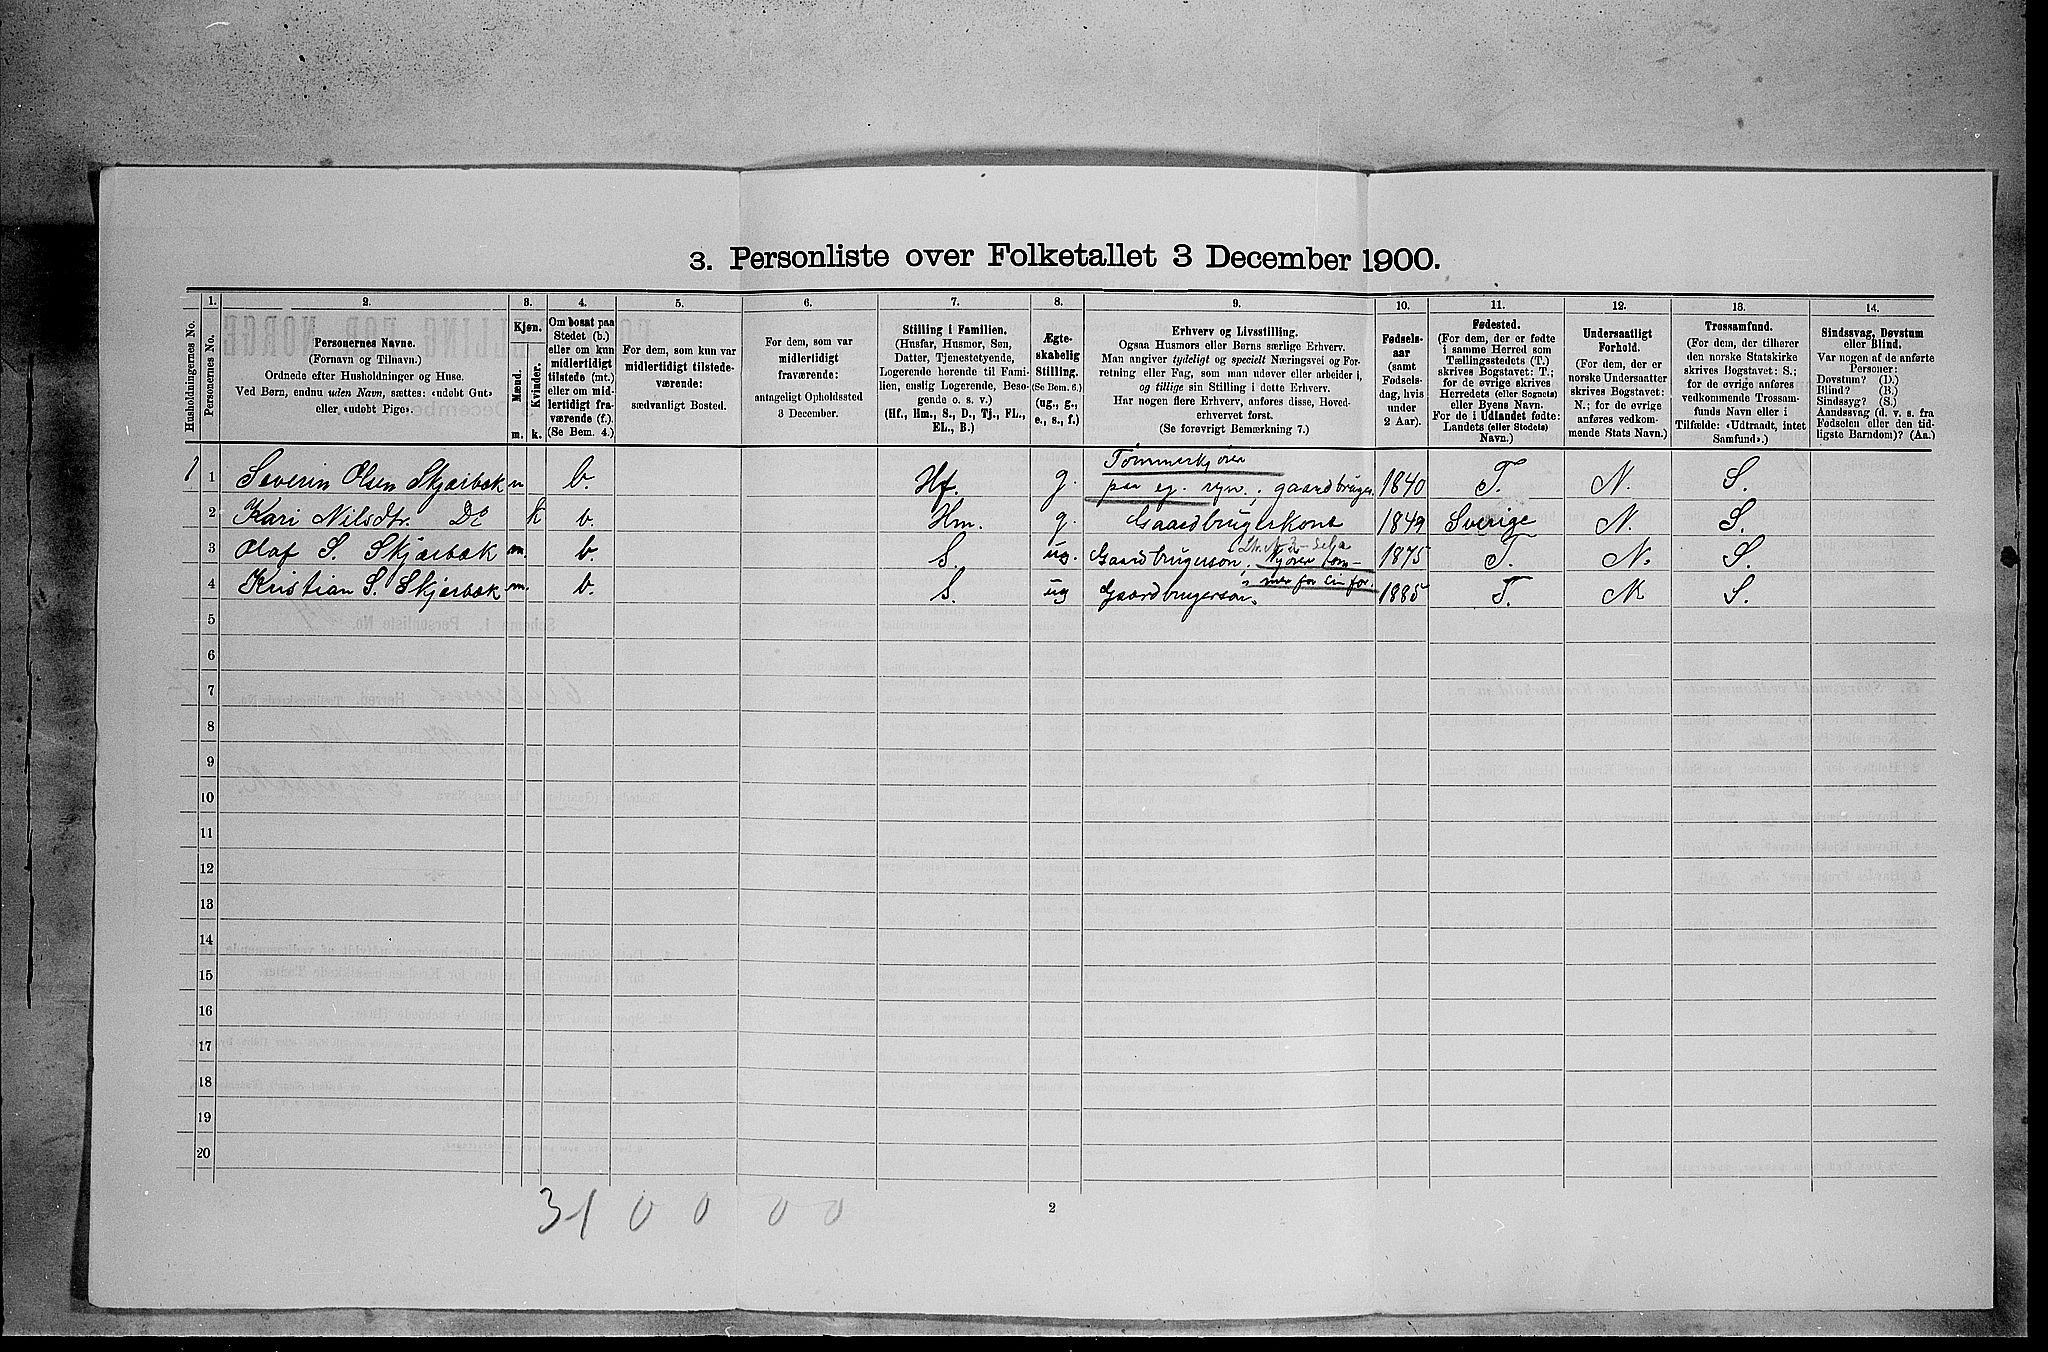 3. Personliste over Folketallet 3 December 1900.
1. 2. 3. 4. 5. 6. 7. 8. 9. 10. 11. 12. 13. 14.
Husholdningernes No.
Personernes No.
Personernes Navne.
(Fornavn og Tilnavn.)
Ordnede efter Husholdninger og Huse.
Ved Børn, endnu uden Navn, sættes: «udøbt Gut»
eller, «udøbt Pige».
Kjøn.
Mænd.
Kvinder.
m. k.
Om bosat paa
Stedet (b.)
eller om kun
midlertidigt
tilstede (mt.)
eller om mid-
lertidigt fra-
værende (f.)
(Se Bem. 4.)
For dem, som kun var
midlertidigt tilstede-
værende:
sædvanligt Bosted.
For dem, som var
midlertidigt
fraværende:
antageligt Opholdssted
3 December.
Stilling i Familien.
(Husfar, Husmor, Søn,
Datter, Tjenestetyende,
Logerende hørende til Fami-
lien, enslig Logerende, Besø-
gende o. s. v.)
(Hf., Hm., S., D., Tj., FL.,
EL., B.)
Ægte-
skabelig
Stilling.
(Se Bem. 6.)
(ug., g.,
e., s., f.)
Erhverv og Livsstilling.
Ogsaa Husmors eller Børns særlige Erhverv.
Man angiver tydeligt og specielt Næringsvei og For-
retning eller Fag, som man udøver eller arbeider i,
og tillige sin Stilling i dette Erhverv.
Har nogen flere Erhverv, anføres disse, Hoved-
erhvervet først.
(Se forøvrigt Bemærkning 7.)
Fødsels-
aar
(samt
Fødsels-
dag, hvis
under
2 Aar).
Fødested.
(For dem, der er fødte
i samme Herred som
Tællingsstedets (T.)
skrives Bogstavet: T.;
for de øvrige skrives
Herredets (eller Sognets)
eller Byens Navn.
For de i Udlandet fødte:
Landets (eller Stedets)
Navn.)
Undersaatligt
Forhold.
(For dem, der er
norske Undersaatter
skrives Bogstavet:
N.; for de øvrige
anføres vedkom-
mende Stats Navn.)
Trossamfund.
(For dem, der tilhører
den norske Statskirke
skrives Bogstavet: S.;
for de øvrige anføres
vedkommende Trossam-
funds Navn eller i
Tilfælde: «Udtraadt, intet
Samfund».)
Sindssvag, Døvstum
eller Blind.
Var nogen af de anførte
Personer:
Døvstum? (D.)
Blind? (B.)
Sindssyg? (S.)
Aandssvag (d. v. s. fra
Fødselen eller den tid-
ligste Barndom)? (Aa.)
Tømmerkjører
1 1 Severin Olsen Skjærbæk m b. Hf. g. paa eg. regn.; gaardbruger 1840 T. N. S.
2 Kari Nilsdtr. Do k b. Hm. g. Gaardbrugerkone 1849 Sverige N. S.
3 Olaf S. Skjærbæk m. b. S. ug. Gaardbrugersøn. kjører tøm- 1875 T. N. S.
mer for en for.
4 Kristian S. Skjærbæk m. b. S. ug Gaardbrugersøn. 1885 T. N S.
5
6
7
8
9
10
11
12
13
14
15
16
17
18
19
20
31 0 0 0 0
2